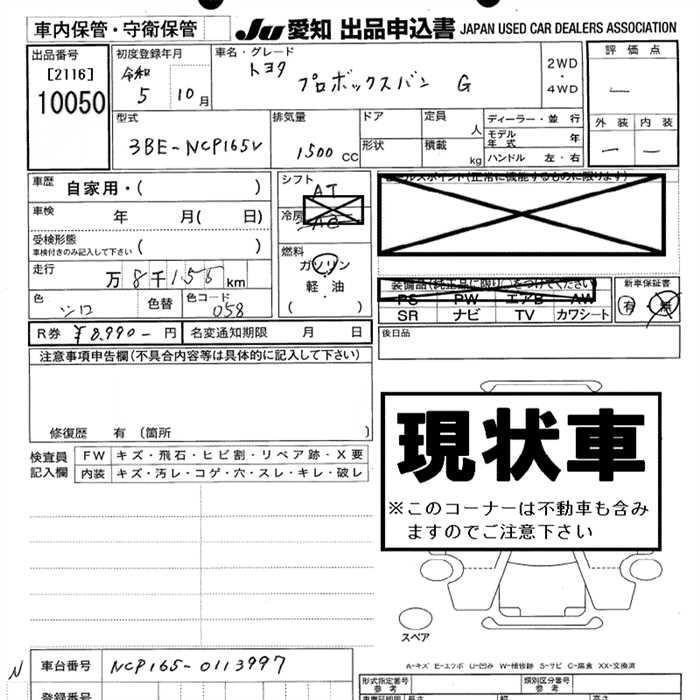 車内保管・守衛保管
JU 愛知 出品申込書 JAPAN USED CAR DEALERS ASSOCIATION
出品番号
[2116]
10050
初度登録年月
令和
5 10月
車名・グレード
トヨタ
プロボックスバン G
2WD
・
4WD
評価点
―
外装 内装
― ―
型式
3BE-NCP165V
排気量
1500 CC
ドア
形状
定員
人
積載
kg
ディーラー・並行
モデル年式 年
ハンドル 左・右
車歴 自家用・( )
車検 年 月( 日)
受検形態
車検付きのみ記入して下さい ( )
走行
万8千155km
色 シロ
色替
色コード 058
シフト
AT
冷房
AC
燃料
ガソリン
軽・油
( )
セールスポイント(正常に機能するものに限ります)
装備品(純正品に限り○をつけてください)
PS PW エアB AW
SR ナビ TV カワシート
新車保証書
有・無
R券 ¥8,990- 円
名変通知期限 月 日
後日品
注意事項申告欄(不具合内容等は具体的に記入して下さい)
修復歴 有 〔箇所 〕
検査員
記入欄
FW キズ・飛石・ヒビ割・リペア跡・X要
内装 キズ・汚レ・コゲ・穴・スレ・キレ・破レ
現状車
※このコーナーは不動車も含み
ますのでご注意下さい
スペア
A-キズ E-エクボ U-凹み W-補修跡 S-サビ C-腐食 XX-交換済
N 車台番号 NCP165-0113997
登録番号
形式指定番号
参考
類別区分番号
参考
長さ
幅
高さ